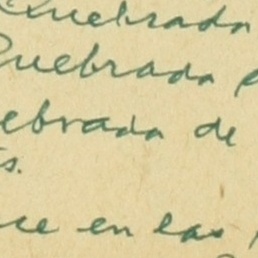 Quebrada
Quebrada
ebrada de
s.
ce en las